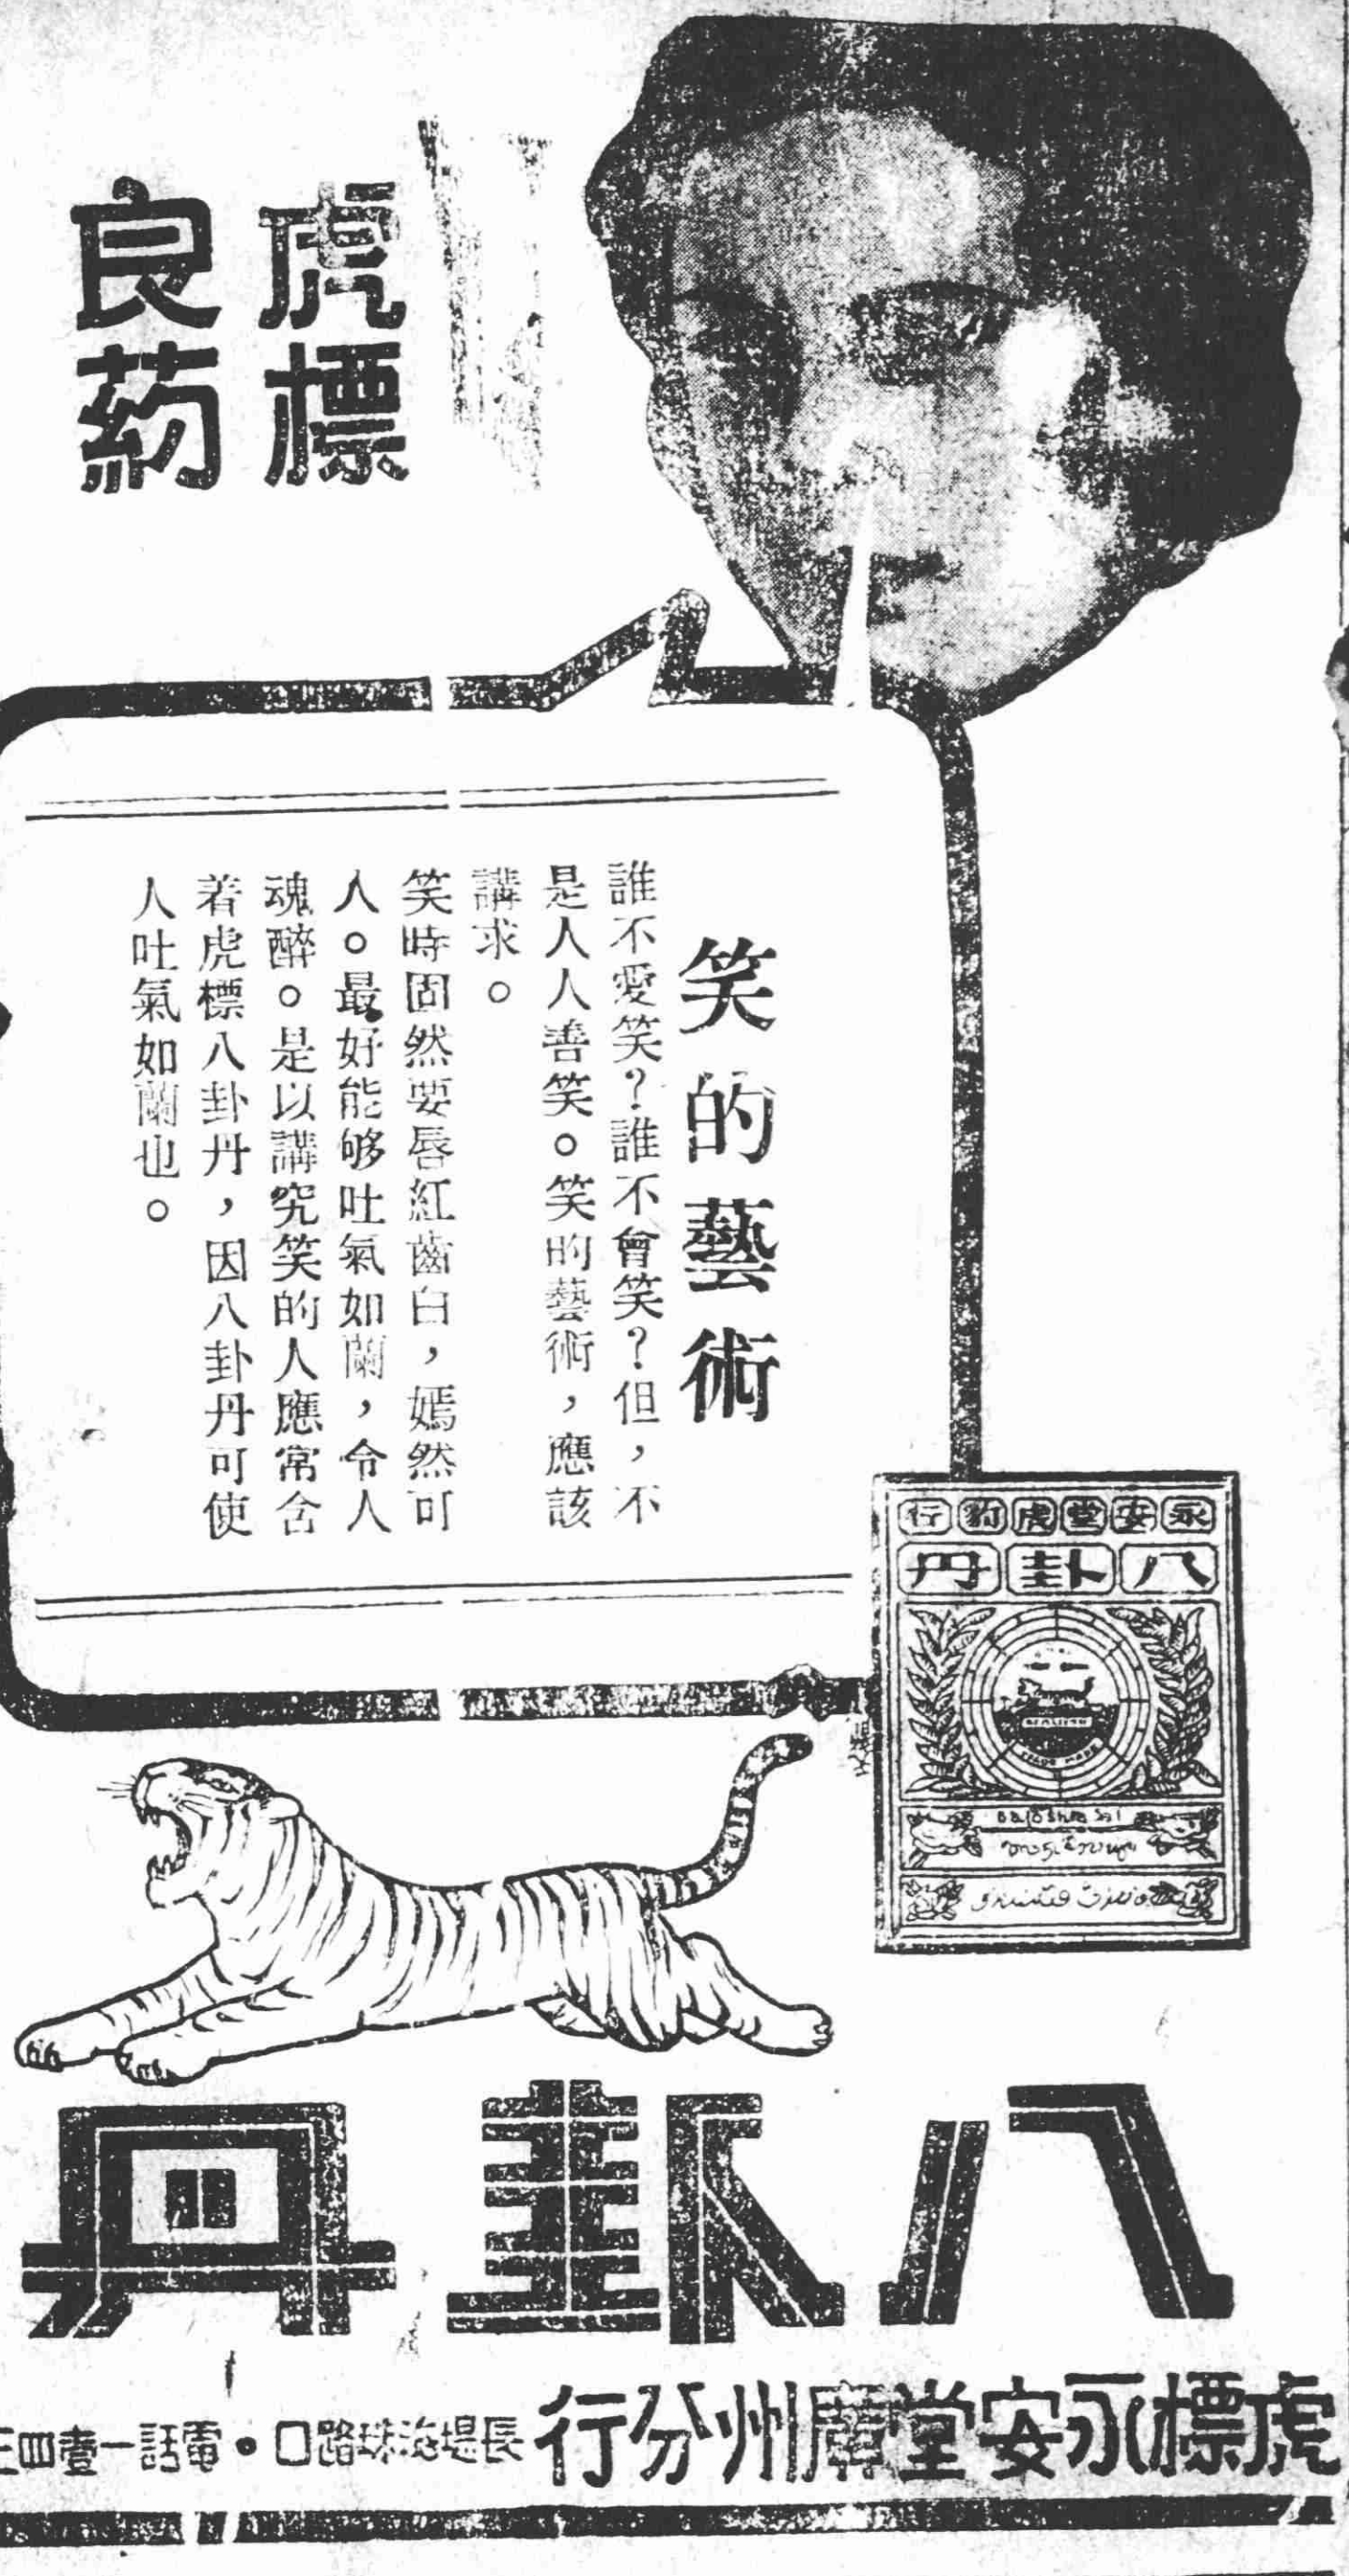 虎標
良药
笑的藝術
誰不愛笑？誰不會笑？但，不
是人人善笑。笑的藝術，應該
講求。
笑時固然要唇紅齒白，嫣然可
人。最好能够吐氣如蘭，令人
魂醉。是以講究笑的人應常含
着虎標八卦丹，因八卦丹可使
人吐氣如蘭也。
永安堂虎豹行
八卦丹
TRADE MARK
八卦丹
虎標永安堂廣州分行
長堤海珠路口・電話一壹四三